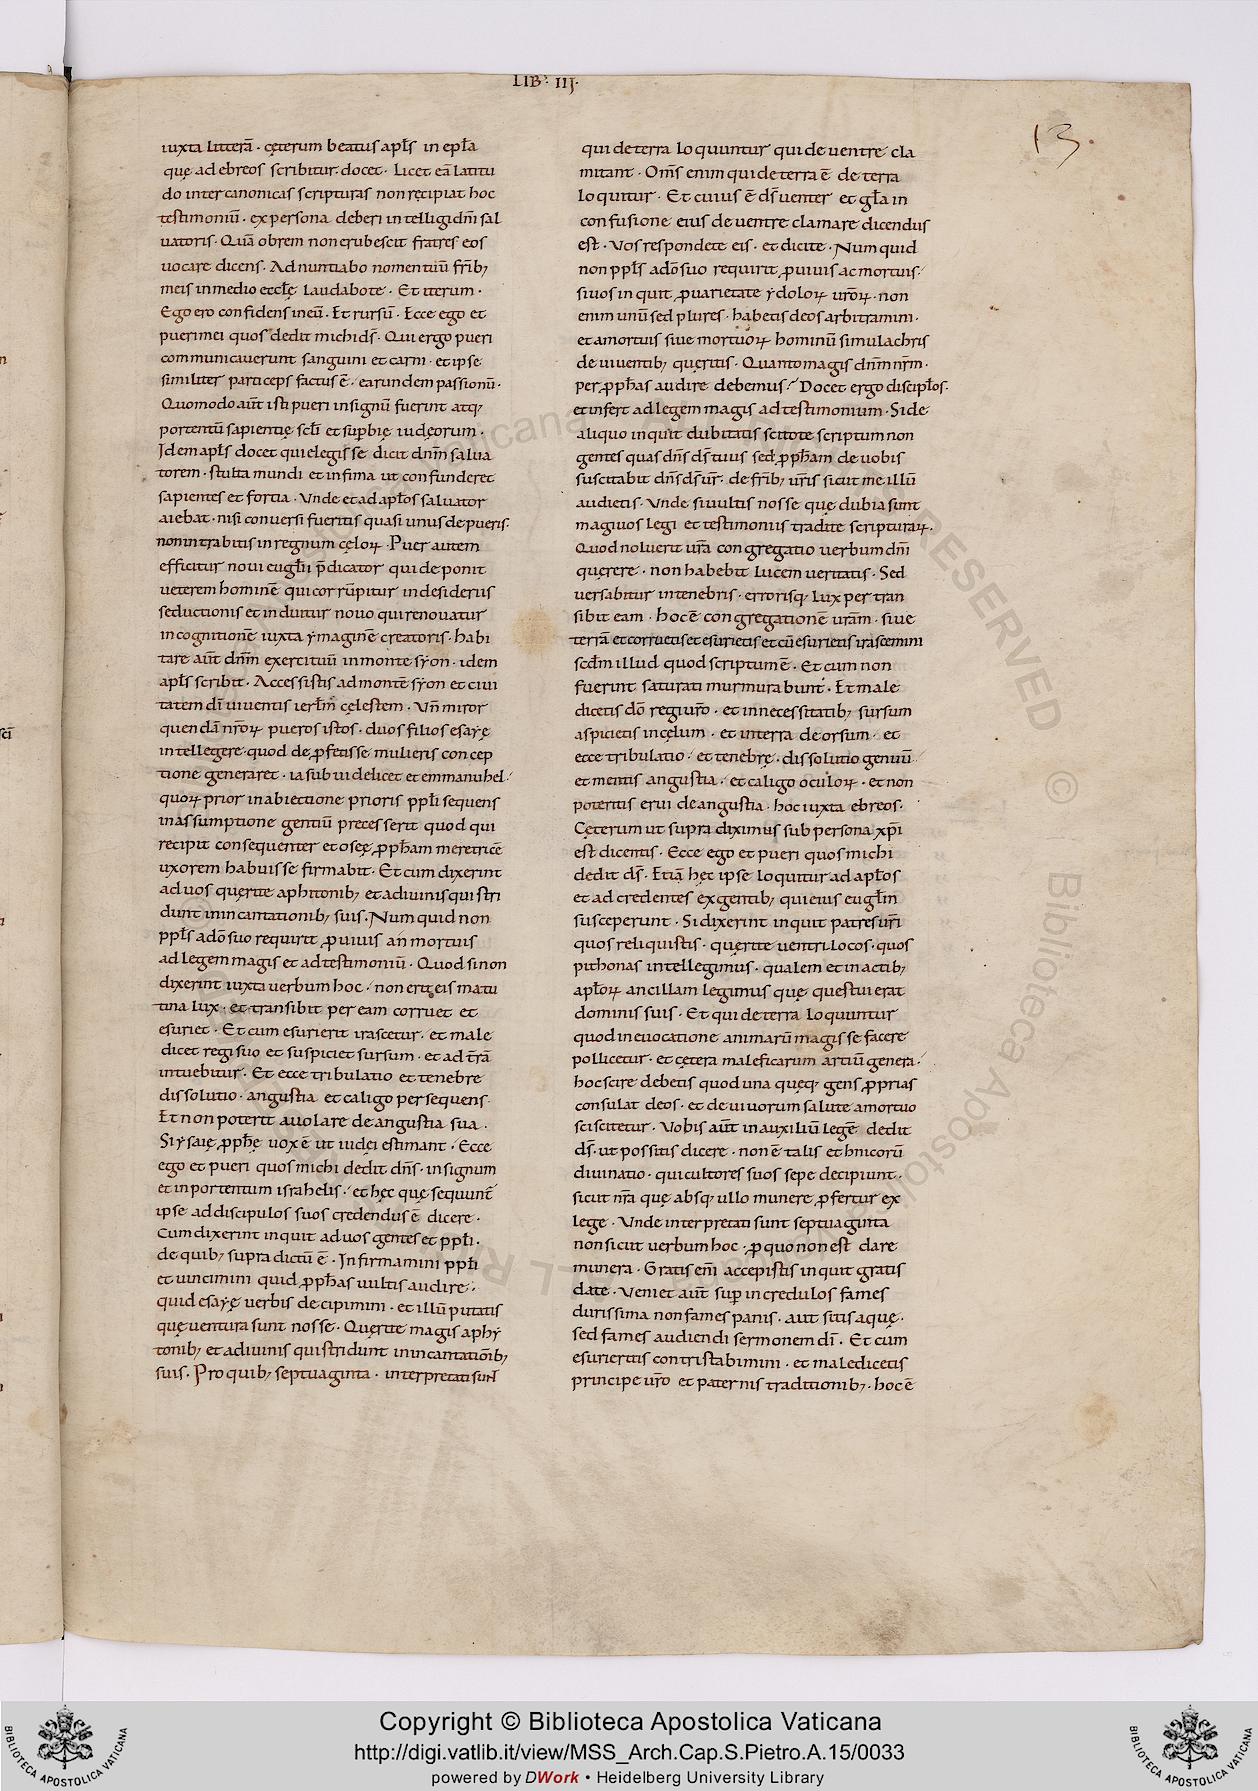 LIB · III·
13.
iuxta litterā · cęterum beatus apl̄s in epl̄a
quę ad ebreos scribitur docet · Licet eā latitu
do inter canonicas scripturas non recipiat hoc
testimoniū · ex persona deberi intelligi dn̄i sal
uatoris · Quā obrem non erubescit fratres eos
uocare dicens · Ad nuntiabo nomen tuū fr̄ib;
meis in medio eccl̄ę laudabo te · Et iterum ·
Ego ero confidens in eū · Et rursū · Ecce ego et
pueri mei quos dedit michi ds̄ · Qui ergo pueri
communicauerunt sanguini et carni · et ipse
similiter particeps factus ē · earundem passionū ·
Quomodo aūt isti pueri in signū fuerint atq;
portentū sapientię scl̄i et sup̄bię iudęorum ·
Idem apl̄s docet qui elegisse dicit dn̄m salua
torem · stulta mundi et infima ut confunderet
sapientes et fortia · Vnde et ad apl̄os saluator
aiebat · nisi conuersi fueritis quasi unus de pueris ·
non intrabitis in regnum cęloꝝ · Puer autem
efficitur noui eugl̄ii p̄dicator qui deponit
ueterem hominē qui corrūpitur in desideriis
seductionis et induitur nouo qui renouatur
in cognitionē iuxta ymaginē creatoris · habi
tare aūt dn̄m exercituū in monte syon · idem
apl̄s scribit · Accessistis ad montē syon et ciui
tatem dī uiuentis ierl̄m cęlestem · Vn̄ miror
quendā nr̄oꝝ pueros istos · duos filios esayę
intellegere · quod de ꝓfetisse mulieris concep
tione generaret · iasub uidelicet et emmanuhel ·
quoꝝ prior in abiectione prioris ppl̄i sequens
in assumptione gentiū precesserit quod qui
recipit consequenter et osęę ꝓph̄am meretricē
uxorem habuisse firmabit · Et cum dixerint
ad uos quęrite a phitonib; et a diuinis qui stri
dunt in incantationib; suis · Num quid non
ppl̄s a dō suo requirit ꝓ uiuis an mortuis
ad legem magis et ad testimoniū · Quod si non
dixerint iuxta uerbum hoc · non erit eis matu
tina lux · et transibit per eam corruet et
esuriet · Et cum esurierit irascetur · et male
dicet regi suo et suspiciet sursum · et ad tr̄ā
intuebitur · Et ecce tribulatio et tenebre
dissolutio · angustia et caligo persequens ·
Et non poterit auolare de angustia sua ·
Si ysaię ꝓph̄ę uox ē ut iudęi estimant · Ecce
ego et pueri quos michi dedit dn̄s · in signum
et in portentum israhelis · et hęc quę sequunt̄
ipse ad discipulos suos credendus ē dicere ·
Cum dixerint inquit ad uos gentes et ppl̄i ·
de quib; supra dictū ē · Infirmamini ppl̄i
et uincimini quid ꝓph̄as uultis audire ·
quid esayę uerbis decipimini · et illū putatis
quę uentura sunt nosse · Quęrite magis a phy
tonib; et a diuinis qui stridunt in incantatiōib;
suis · Pro quib; septuaginta · interpretati sunt
qui de terra loquuntur qui de uentre cla
mitant · Om̄s enim qui de terra ē de terra
loquitur · Et cuius ē ds̄ uenter et gl̄a in
confusione eius de uentre clamare dicendus
est · Vos respondete eis · et dicite · Num quid
non ppl̄s a dō suo requirit ꝓ uiuis ac mortuis ·
si uos inquit ꝓ uarietate ydoloꝝ ur̄oꝝ · non
enim unū sed plures · habetis deos arbitramini ·
et a mortuis siue mortuoꝝ hominū simulachris
de uiuentib; quęritis · Quanto magis dn̄m nr̄m ·
per ꝓph̄as audire debemus · Docet ergo discipl̄os ·
et infert ad legem magis ad testimonium · Si de
aliquo inquit dubitatis scitote scriptum non
gentes quas dn̄s ds̄ tuus sed ꝓph̄am de uobis
suscitabit dn̄s ds̄ ur̄ · de fr̄ib; ur̄is sicut me illū
audietis · Vnde si uultis nosse quę dubia sunt
magi uos legi et testimoniis tradite scripturaꝝ ·
Quod noluerit ur̄a congregatio uerbum dn̄i
quęrere · non habebit lucem ueritatis · Sed
uersabitur in tenebris · errorisq; lux per tran
sibit eam · hoc ē congregationē ur̄am · siue
terrā et corruetis et esurietis et cū esurietis irascemini
scd̄m illud quod scriptum ē · Et cum non
fuerint saturati murmurabunt · Et male
dicetis dō regi ur̄o · et in necessitatib; sursum
aspicietis in cęlum · et in terra deorsum · et
ecce tribulatio · et tenebrę · dissolutio genuū ·
et mentis angustia · et caligo oculoꝝ · et non
poteritis erui de angustia · hoc iuxta ebreos ·
Cęterum ut supra diximus sub persona xp̄i
est dicentis · Ecce ego et pueri quos michi
dedit ds̄ · Etiā hęc ipse loquitur ad apl̄os
et ad credentes ex gentib; qui eius eugl̄m
susceperunt · Si dixerint inquit patres ur̄i
quos reliquistis · quęrite uentrilocos · quos
pithonas intellegimus · qualem et in actib;
apl̄oꝝ ancillam legimus quę questui erat
dominis suis · Et qui de terra loquuntur
quod in euocatione animarū magis se facere
pollicetur · et cętera maleficarum artiū genera ·
hoc scire debetis quod una quęq; gens ꝓprias
consulat deos · et de uiuorum salute a mortuo
sciscitetur · Vobis aūt in auxiliū legē dedit
ds̄ · ut possitis dicere · non ē talis ethnicorū
diuinatio · qui cultores suos sepe decipiunt ·
sicut nr̄a quę absq; ullo munere ꝓfertur ex
lege · Vnde interpretati sunt septuaginta
non sicut uerbum hoc · ꝓ quo non est dare
munera · Gratis em̄ accepistis inquit gratis
date · Veniet aūt sup̄ incredulos fames
durissima non fames panis · aut sitis aquę ·
sed fames audiendi sermonem dī · Et cum
esurieritis contristabimini · et maledicetis
principe ur̄o et paternis traditionib; · hoc ē
Copyright © Biblioteca Apostolica Vaticana
http://digi.vatlib.it/view/MSS_Arch.Cap.S.Pietro.A.15/0033
powered by DWork • Heidelberg University Library